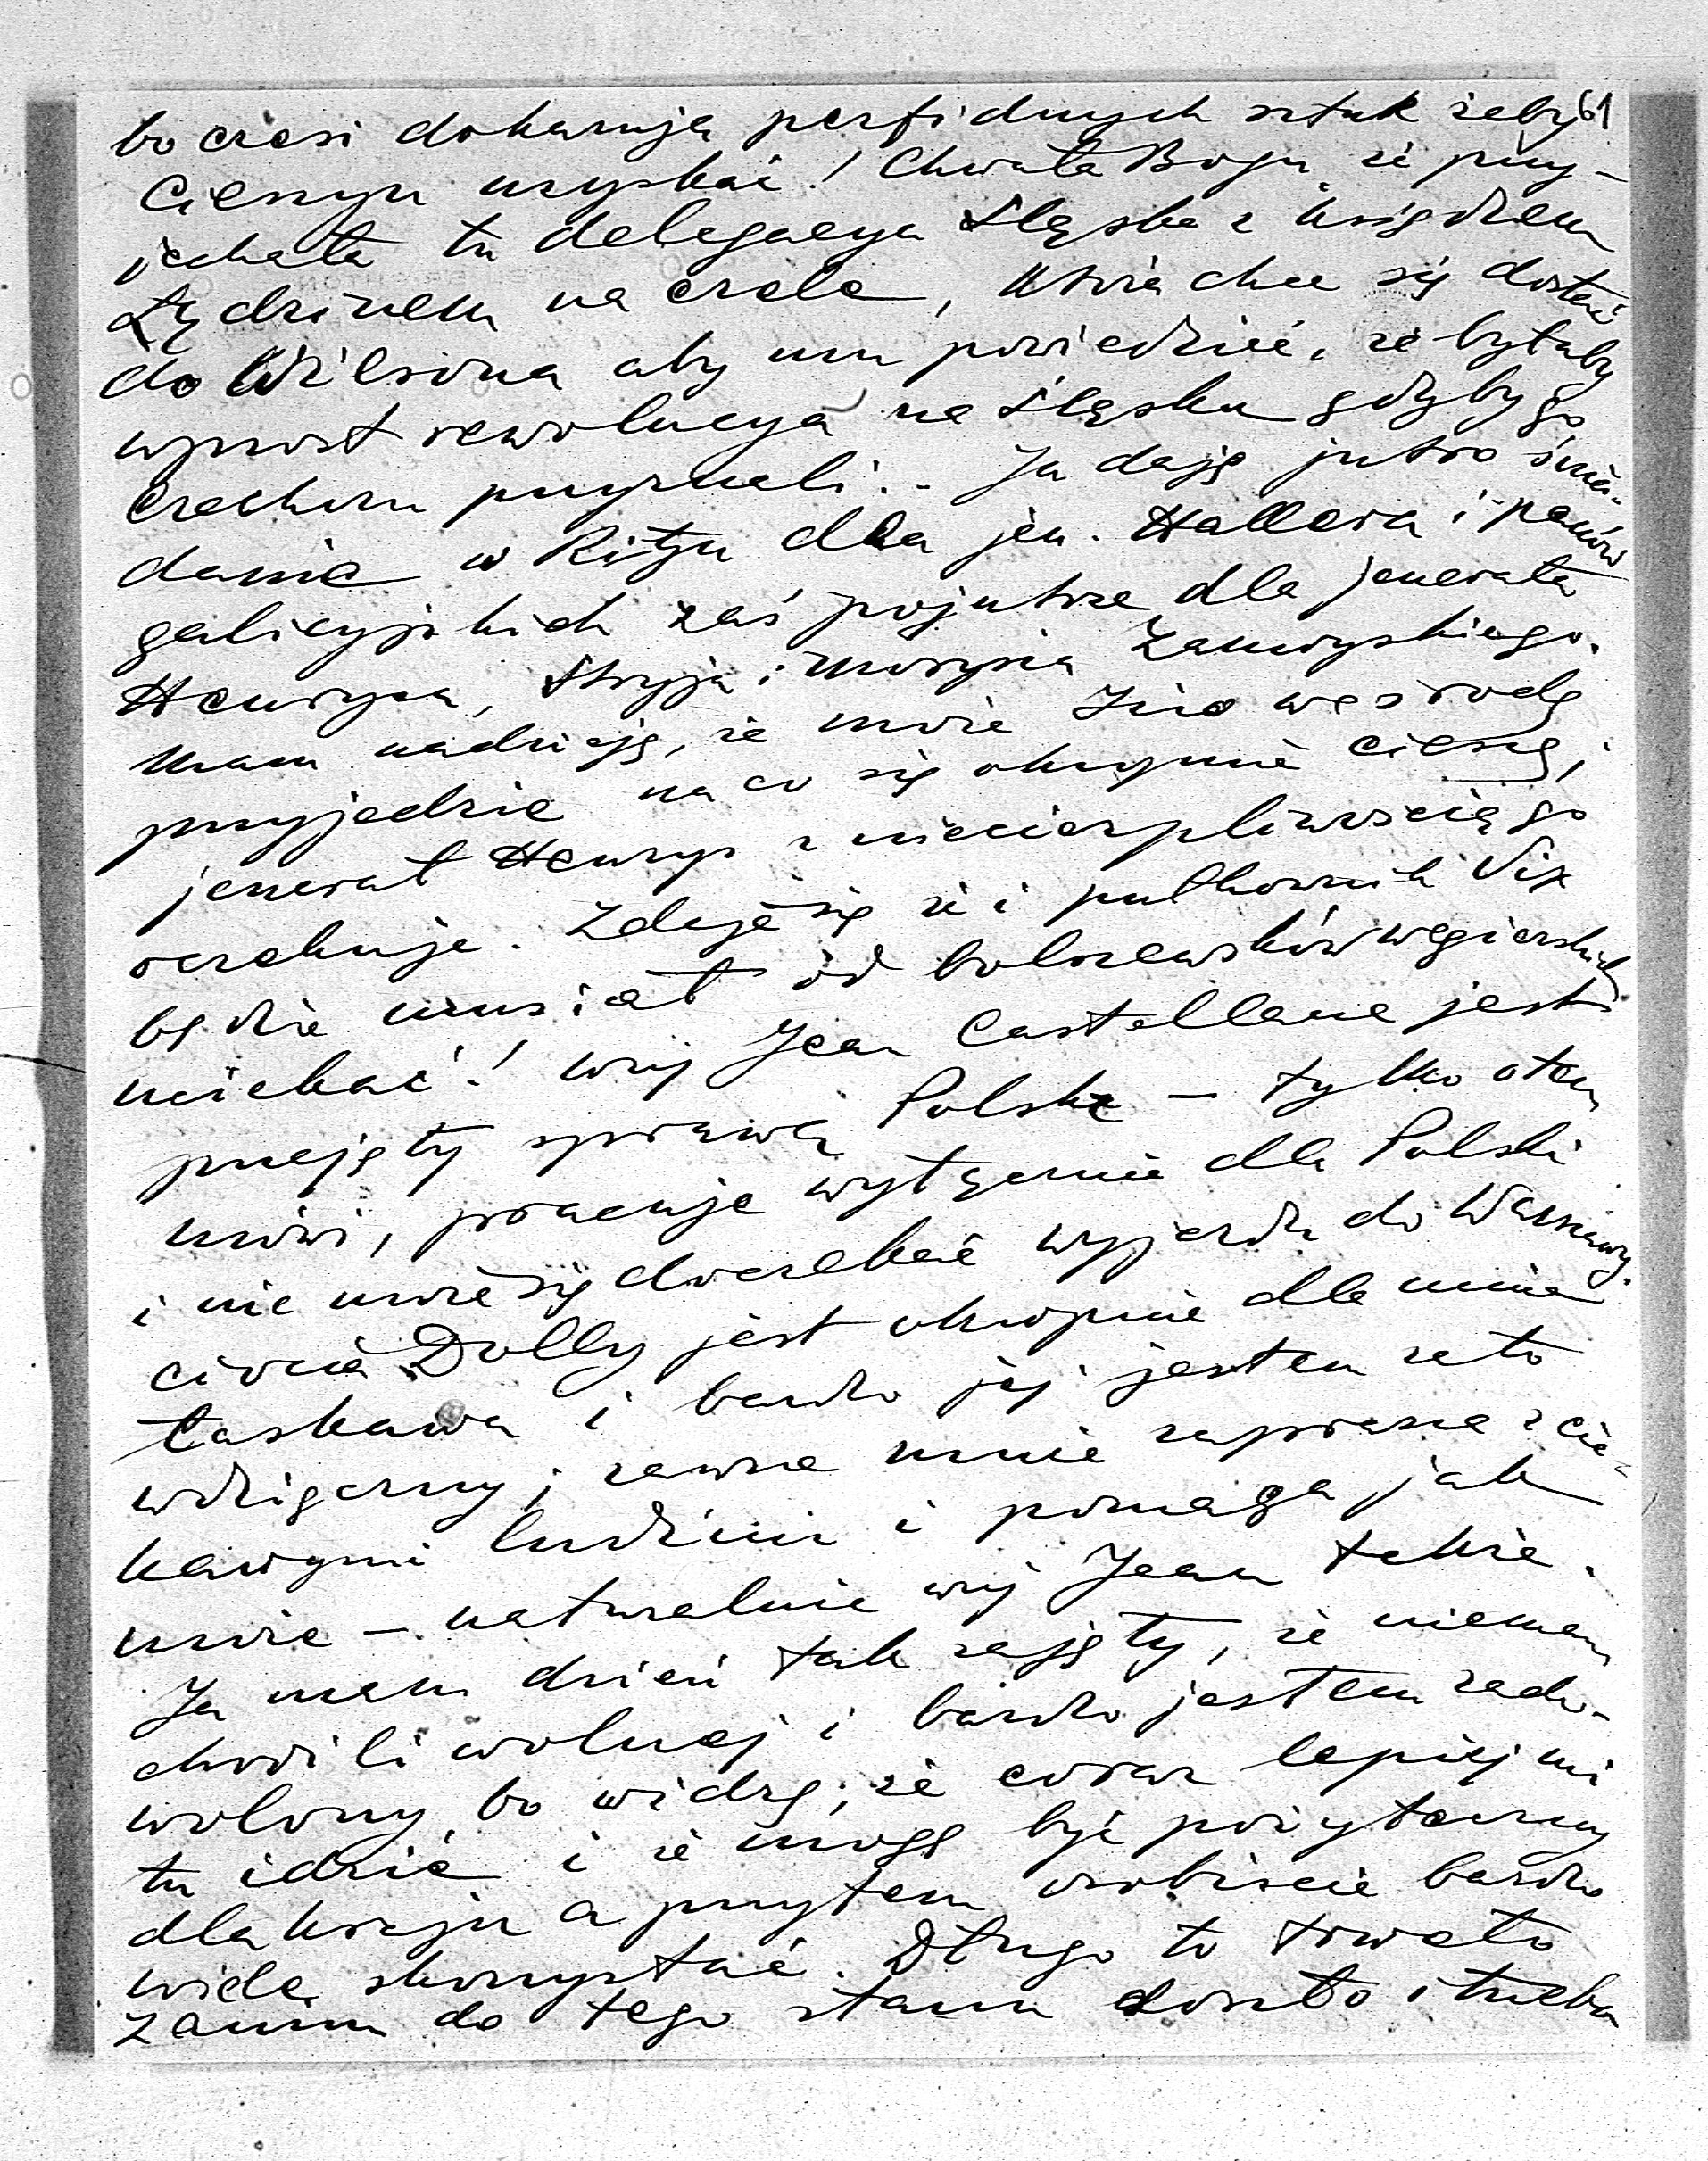 61
bo czesi dokazują perfidnych sztuk żeby
Cieszyn uzyskać! Chwała Bogu, że przy-
jechała tu delegacya Śląska z księdzem
Lądzinem na czele, która chce się dostać
do Wilsona aby mu powiedzieć, że byłaby
wprost rewolucya na Śląsku gdyby go
Czechom przyznali.. Ja daję jutro śnia-
danie w Ritzu dla jen. Hallera i panów
galicyjskich zaś pojutrze dla jenerała
Henrysa, Stryja i Morysia Zamoyskiego.
Mam nadzieję, że może we środę
przyjedzie na co się okropnie cieszę;
jenerał Henrys z niecierpliwością go
oczekuje. Zdaje się że i pułkownik Vix
będzie musiał od bolszewików węgierskich
uciekać! wuj Jean Castellane jest
przejęty sprawą Polską – tylko o tem
mówi, pracuje wytężenie dla Polski
i nie może się doczekać wyjazdu do Warszawy.
ciocia Dolly jest okropnie dla mnie
łaskawa i bardzo jej jestem za to
wdzięczny; zawsze mnie zaprasza z cie-
kawymi ludźmi i pomaga jak
może – naturalnie wuj Jean także.
Ja mam dzień tak zajęty, że niemam
chwili wolnej i bardzo jestem zado-
wolony, bo widzę, że coraz lepiej mi
tu idzie i że mogę być pożyteczny
dla kraju a przytem osobiście bardzo
wiele skorzystać. Długo to trwało
zanim do tego stanu doszło i trzeba